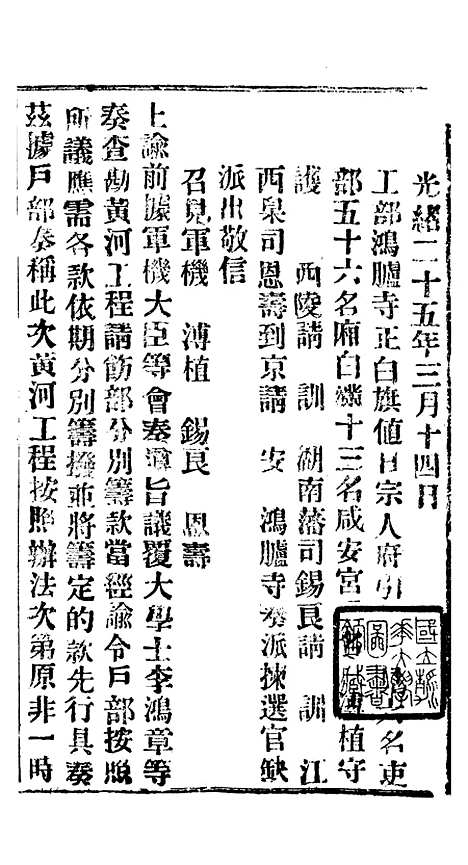 光緒二十五年三月十四日
工部鴻臚寺正白旗値日宗人府引 名吏
部五十六名廂白旗十三名咸安宮 植守
護 西陵請 訓 湖南藩司錫良請 訓 江
西臬司恩壽到京請 安 鴻臚寺奏派揀選官缺
派出敬信
召見軍機 溥植 錫良 恩壽
上諭前據軍機大臣等會奏遵旨議覆大學士李鴻章等
奏查勘黃河工程請飭部分別籌款當經諭令戶部按照
所議應需各款依期分別籌撥並將籌定的款先行具奏
茲據戶部奏稱此次黃河工程按照辦法次第原非一時
國立
大學
圖書